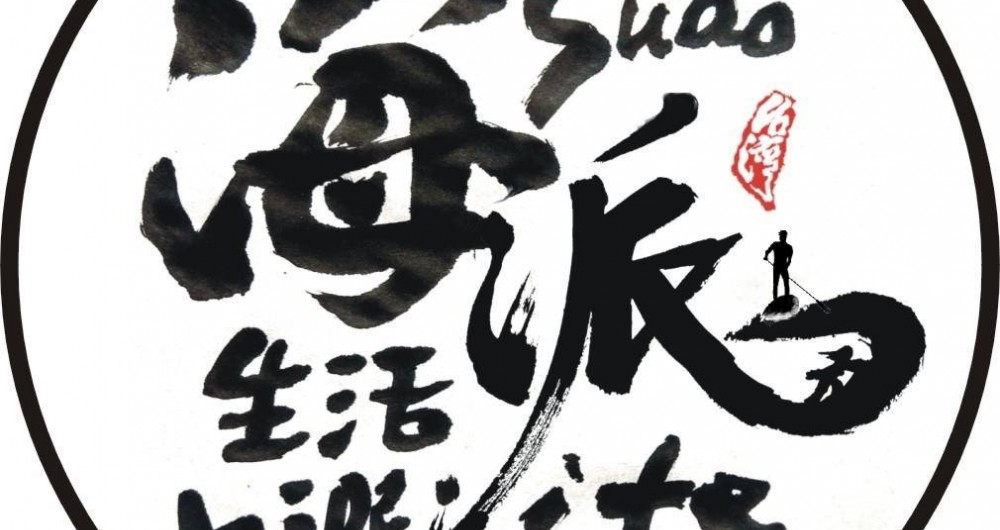 Suao
海派
台灣
生活